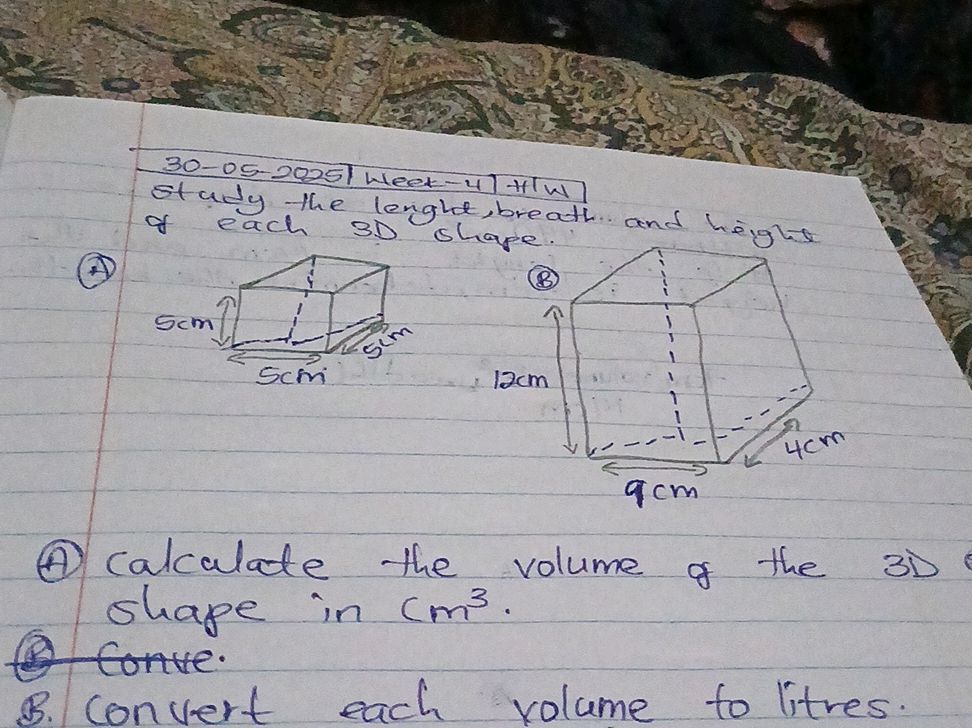 30-05-2025 Week-4 H/W
Study the lenght, breath and height
of each 3D shape.
A
B
5cm
5cm
5cm
12cm
4cm
9cm
A Calculate the volume of the 3D
shape in cm³.
B Conve.
B. Convert each volume to litres.